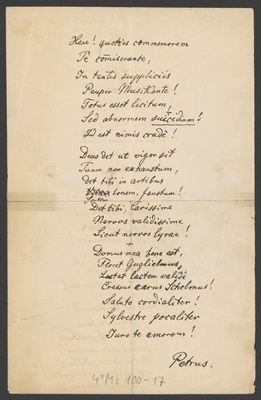 Heu! quoties commemorem
Te commiserante,
In tantis suppliciis
Pauper Musikante!
Totus esset licitum,
Sed abnormem suicidum!
Id est nimis crudé!
Deus det ut vigor sit
Tuum non exhaustum,
Det tibi in artibus
bonem, faustum!
Det tibi, Carissime
Nervos validissime
Sicut nervos lyrae!
+
Domus mea bene est,
Floret Guglielmus,
Lactat lactem validé
Erasmus carus Schelmus!
Saluto cordialiter!
Sylvestre pocaliter
Juro te amorem!
Petrus.
4° Ms 100-17